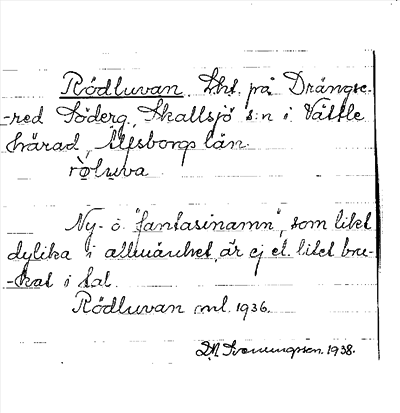 Rödluvan. Lht. på Drängse-
-red Söderg., Skallsjö s:n i Vättle
härad, Älfsborgs län.
rö̀luva
Ny- o. "fantasinamn", som likt
dylika i allmänhet, är ej et. litet bru-
-kat i tal.
Rödluvan ml. 1936.
D.N. Svenungsson. 1938.